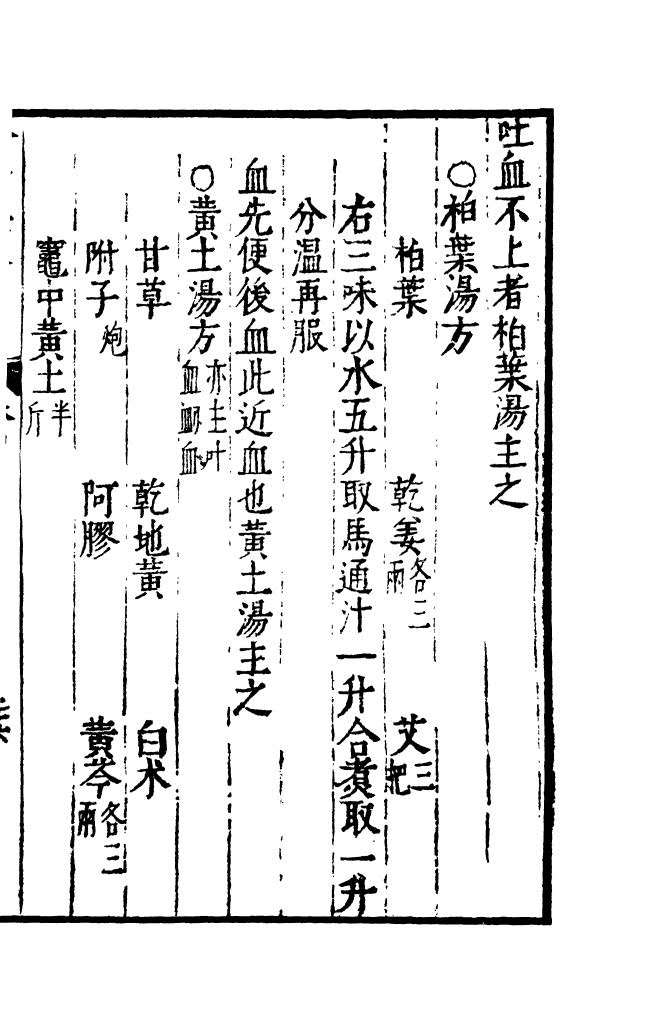 吐血不上者柏葉湯主之
○柏葉湯方
柏葉 乾姜各三兩 艾三把
右三味以水五升取馬通汁一升合煑取一升
分溫再服
血先便後血此近血也黃土湯主之
○黃土湯方亦主吐血衂血
甘草 乾地黃 白术
附子炮 阿膠 黃芩各三兩
竈中黃土半斤